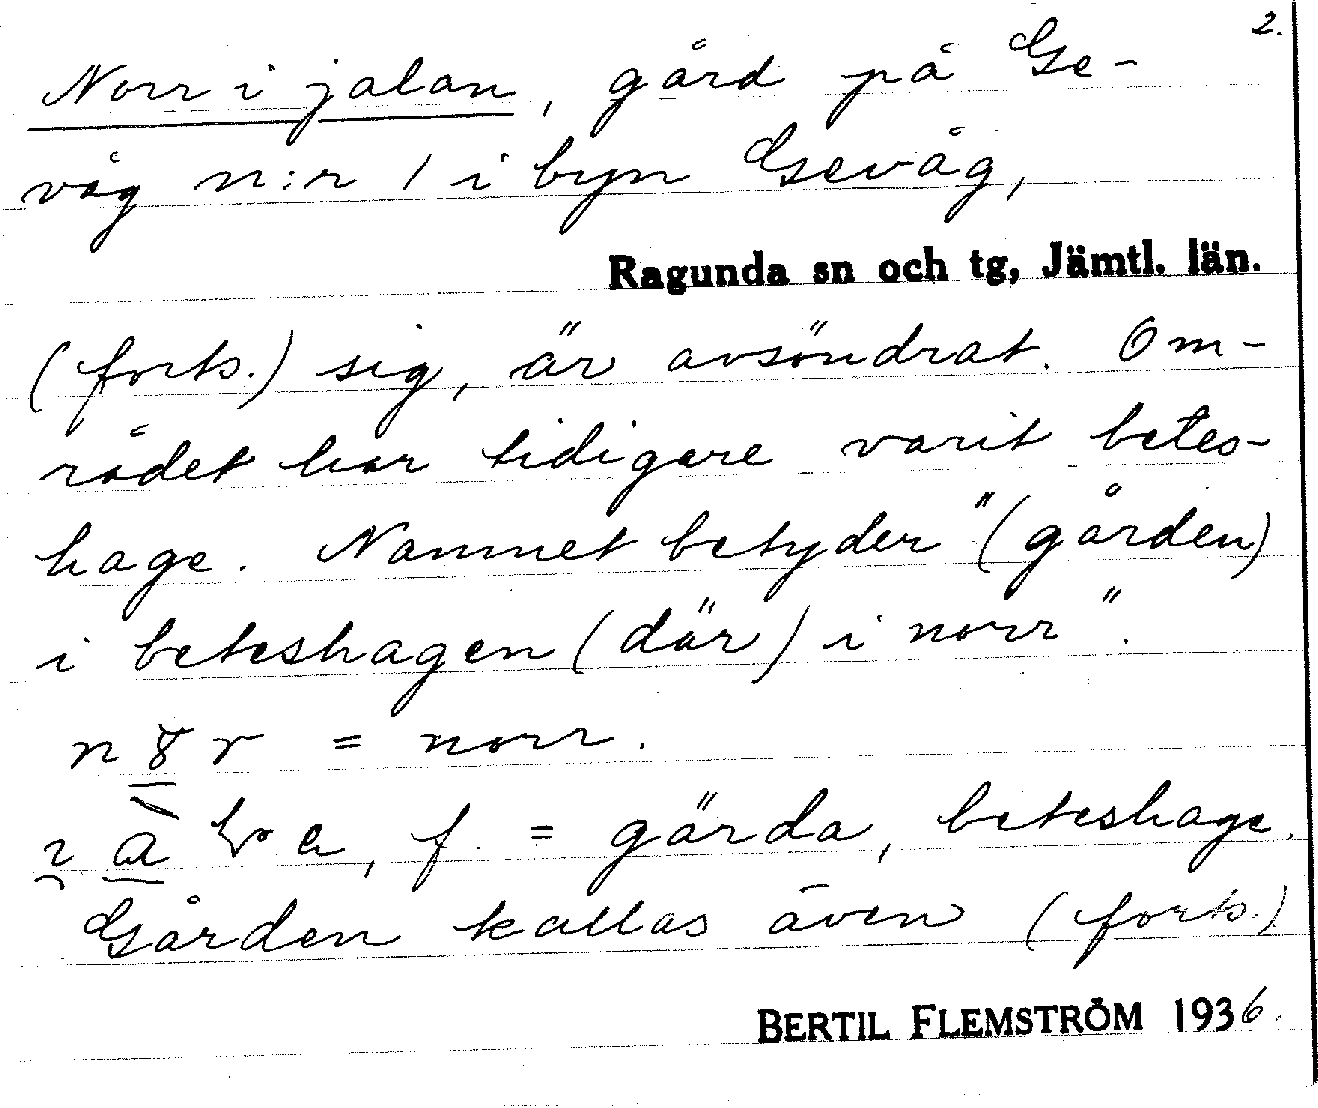 2.
Norr i jalan, gård på Ge-
våg n:r 1 i byn Gevåg,
Ragunda sn och tg, Jämtl. län.
(forts.) sig, är avsöndrat. Om-
rådet har tidigare varit betes-
hage. Namnet betyder "(gården)
i beteshagen (där) i norr".
= norr.
f. = gärda, beteshage.
Gården kallas även (forts.)
BERTIL FLEMSTRÖM 1936.